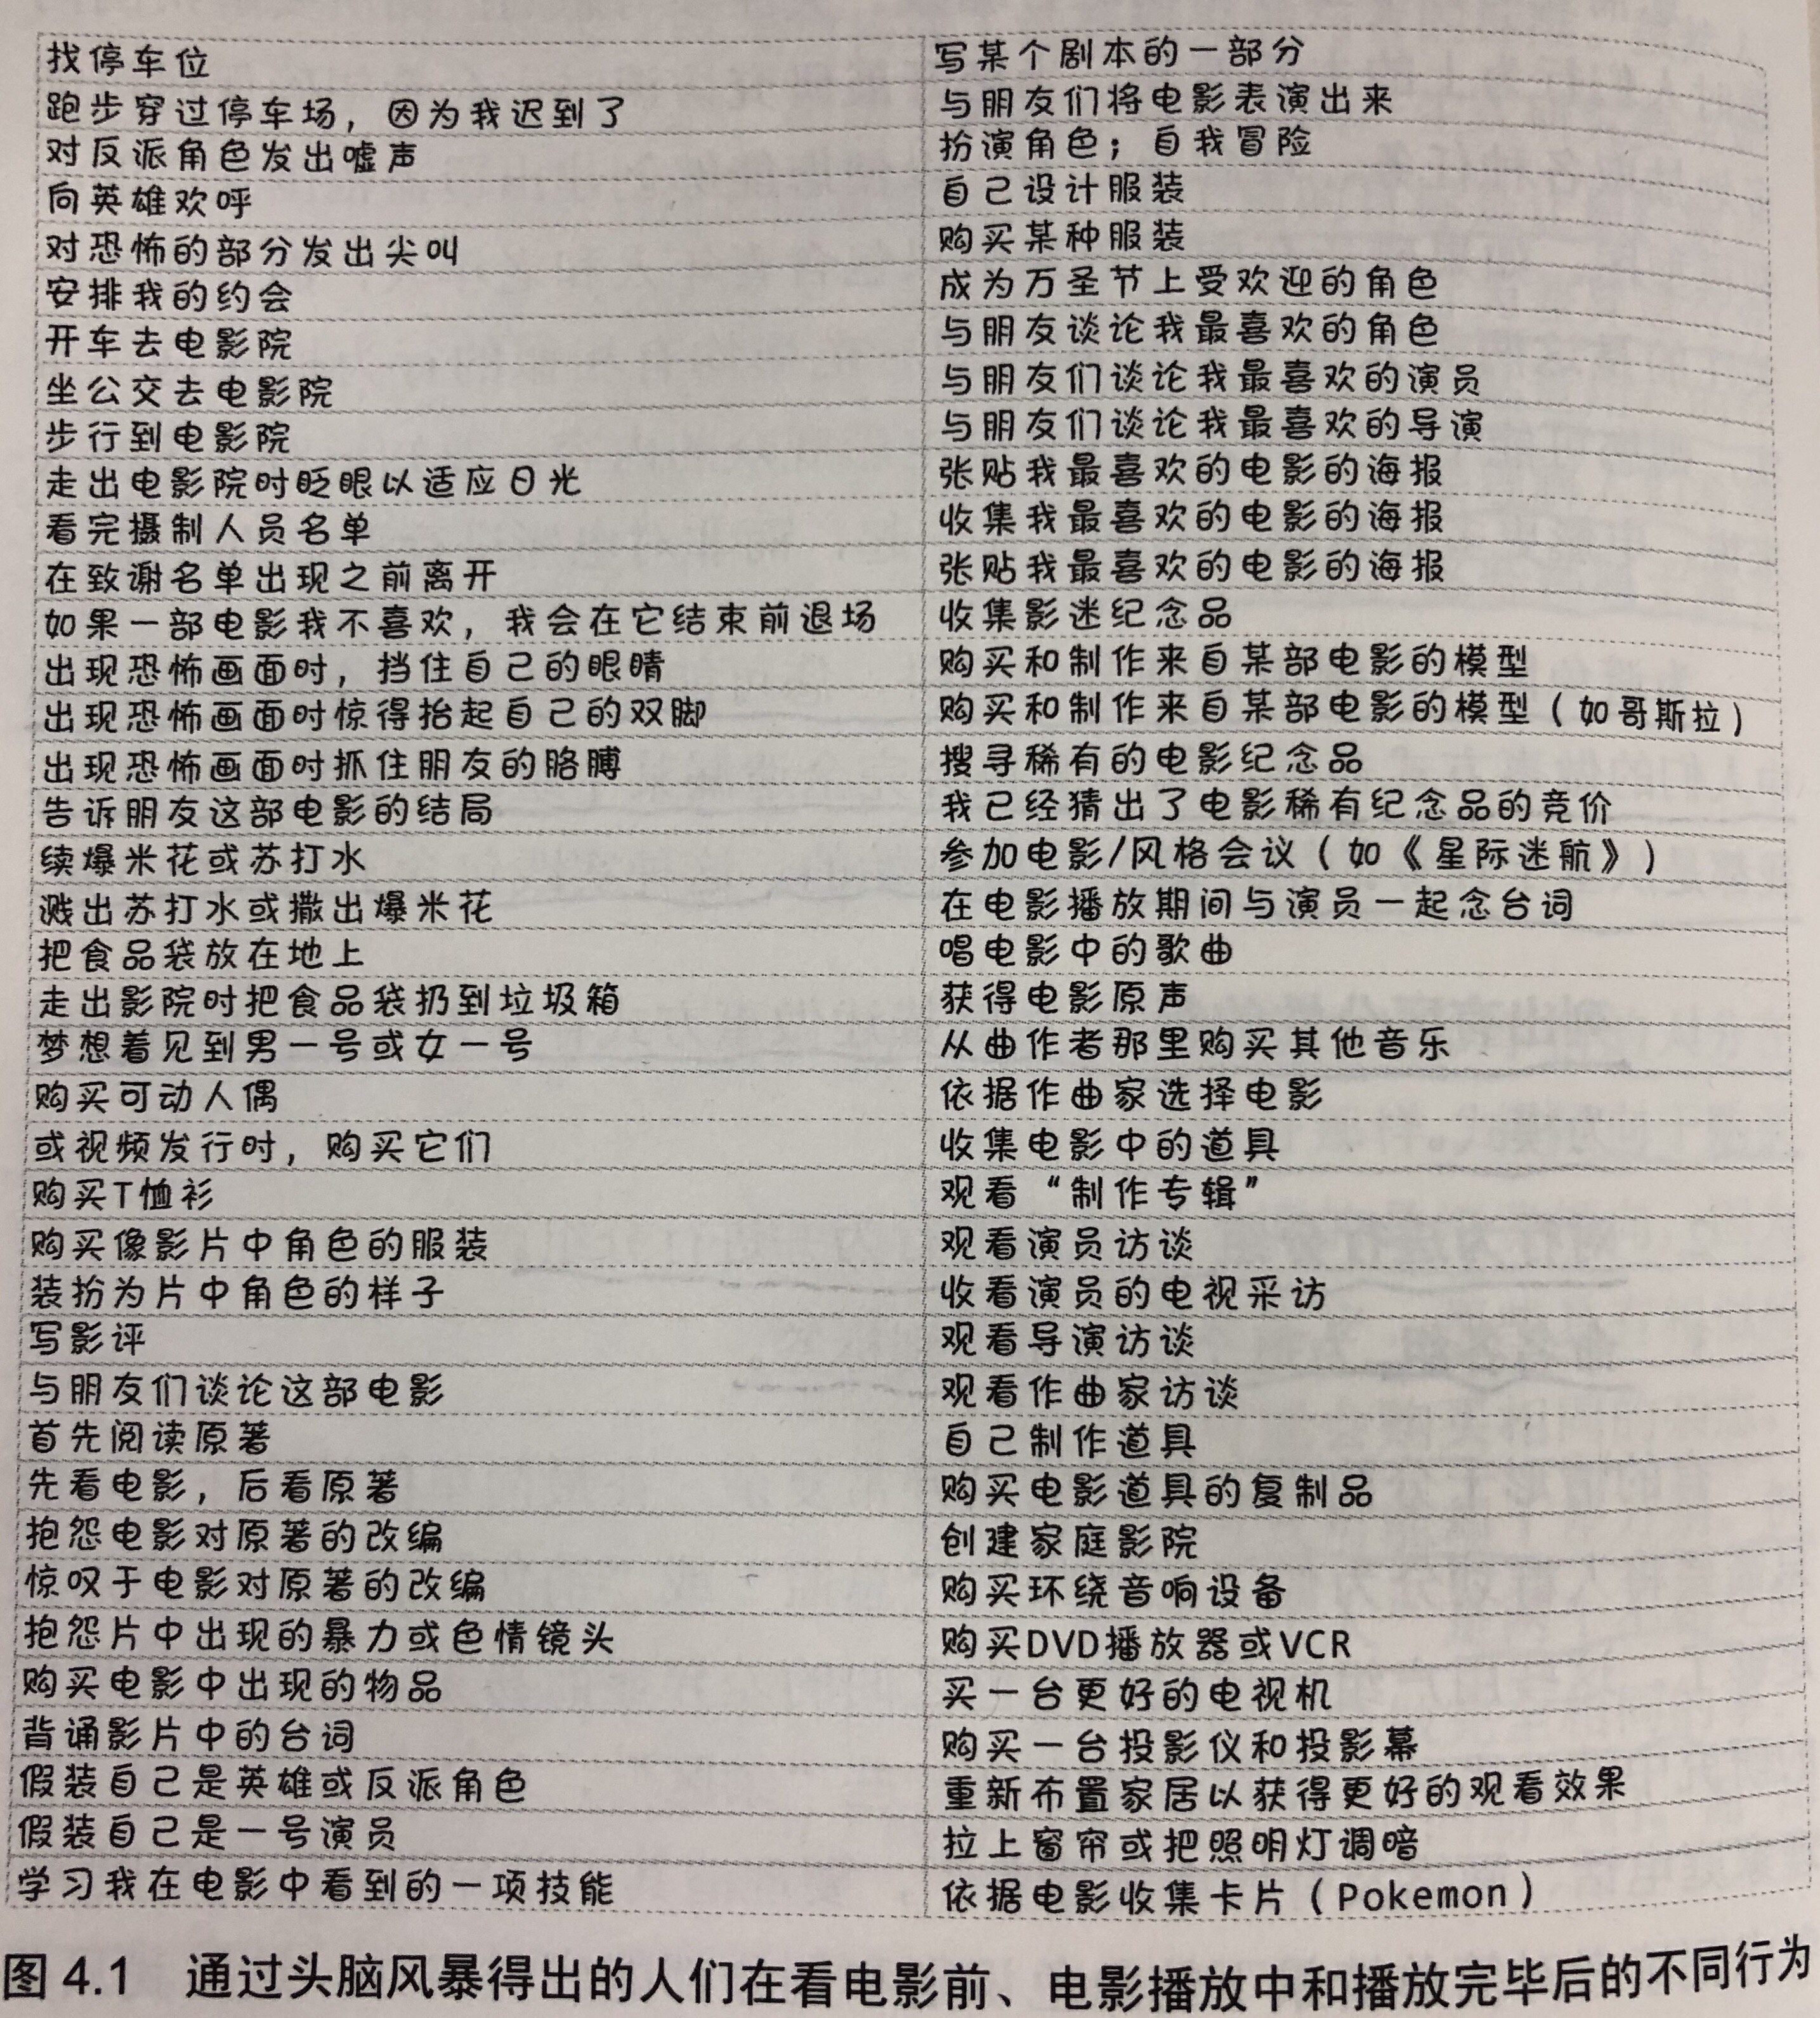 找停车位
跑步穿过停车场，因为我迟到了
对反派角色发出嘘声
向英雄欢呼
对恐怖的部分发出尖叫
安排我的约会
开车去电影院
坐公交去电影院
步行到电影院
走出电影院时眨眼以适应日光
看完摄制人员名单
在致谢名单出现之前离开
如果一部电影我不喜欢，我会在它结束前退场
出现恐怖画面时，挡住自己的眼睛
出现恐怖画面时惊得抬起自己的双脚
出现恐怖画面时抓住朋友的胳膊
告诉朋友这部电影的结局
续爆米花或苏打水
溅出苏打水或撒出爆米花
把食品袋放在地上
走出影院时把食品袋扔到垃圾箱
梦想着见到男一号或女一号
购买可动人偶
或视频发行时，购买它们
购买T恤衫
购买像影片中角色的服装
装扮为片中角色的样子
写影评
与朋友们谈论这部电影
首先阅读原著
先看电影，后看原著
抱怨电影对原著的改编
惊叹于电影对原著的改编
抱怨片中出现的暴力或色情镜头
购买电影中出现的物品
背诵影片中的台词
假装自己是英雄或反派角色
假装自己是一号演员
学习我在电影中看到的一项技能
写某个剧本的一部分
与朋友们将电影表演出来
扮演角色；自我冒险
自己设计服装
购买某种服装
成为万圣节上受欢迎的角色
与朋友谈论我最喜欢的角色
与朋友们谈论我最喜欢的演员
与朋友们谈论我最喜欢的导演
张贴我最喜欢的电影的海报
收集我最喜欢的电影的海报
张贴我最喜欢的电影的海报
收集影迷纪念品
购买和制作来自某部电影的模型
购买和制作来自某部电影的模型（如哥斯拉）
搜寻稀有的电影纪念品
我已经猜出了电影稀有纪念品的竞价
参加电影/风格会议（如《星际迷航》）
在电影播放期间与演员一起念台词
唱电影中的歌曲
获得电影原声
从曲作者那里购买其他音乐
依据作曲家选择电影
收集电影中的道具
观看“制作专辑”
观看演员访谈
收看演员的电视采访
观看导演访谈
观看作曲家访谈
自己制作道具
购买电影道具的复制品
创建家庭影院
购买环绕音响设备
购买DVD播放器或VCR
买一台更好的电视机
购买一台投影仪和投影幕
重新布置家居以获得更好的观看效果
拉上窗帘或把照明灯调暗
依据电影收集卡片（Pokemon）
图 4.1 通过头脑风暴得出的人们在看电影前、电影播放中和播放完毕后的不同行为